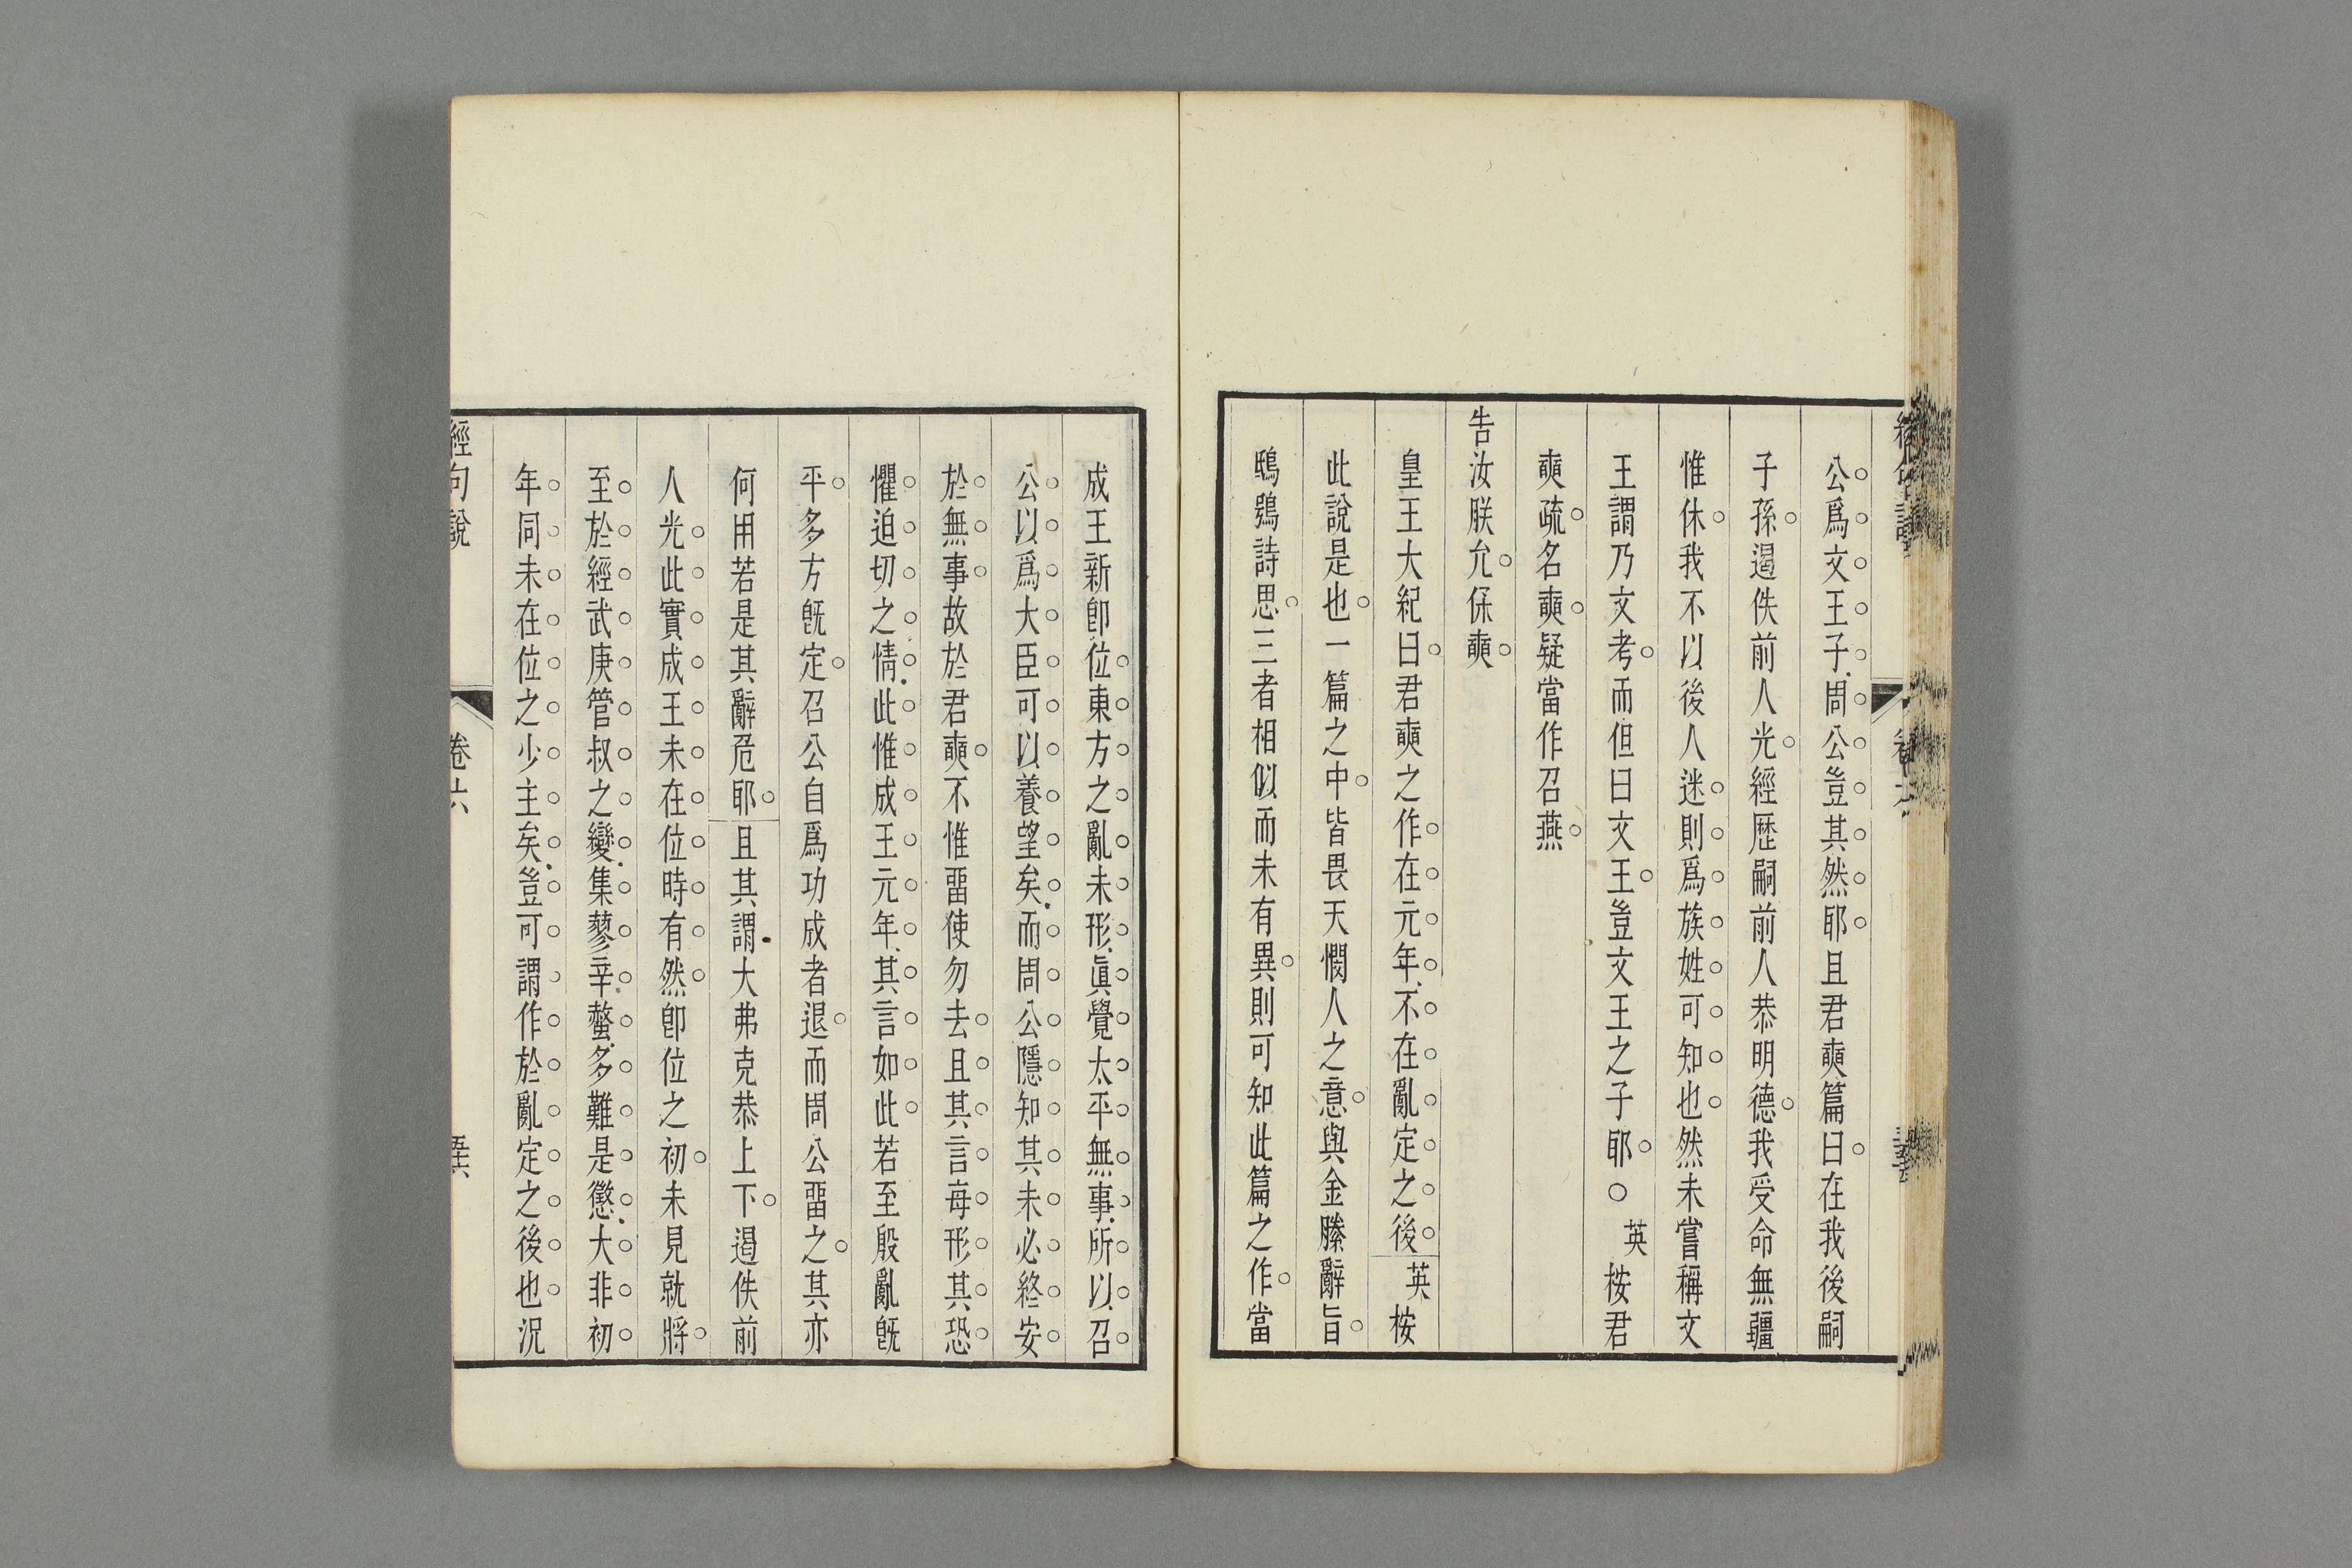 公爲文王子周公豈其然耶且君奭篇曰在我後嗣
子孫遏佚前人光經歷嗣前人恭明德我受命無疆
惟休我不以後人迷則爲族姓可知也然未嘗稱文
王謂乃文考而但曰文王豈文王之子耶○英桉君
奭疏名奭疑當作召燕
告汝朕允保奭
皇王大紀曰君奭之作在元年不在亂定之後英桉
此說是也一篇之中皆畏天憫人之意與金縢辭旨
鴟鴞詩思三者相似而未有異則可知此篇之作當
成王新卽位東方之亂未形眞覺太平無事所以召
公以爲大臣可以養望矣而周公隱知其未必終安
於無事故於君奭不惟畱使勿去且其言每形其恐
懼迫切之情此惟成王元年其言如此若至殷亂旣
平多方旣定召公自爲功成者退而周公畱之其亦
何用若是其辭危耶且其謂大弗克恭上下遏佚前
人光此實成王未在位時有然卽位之初未見就將
至於經武庚管叔之變集蓼辛螫多難是懲大非初
年同未在位之少主矣豈可謂作於亂定之後也況
經句說
卷六